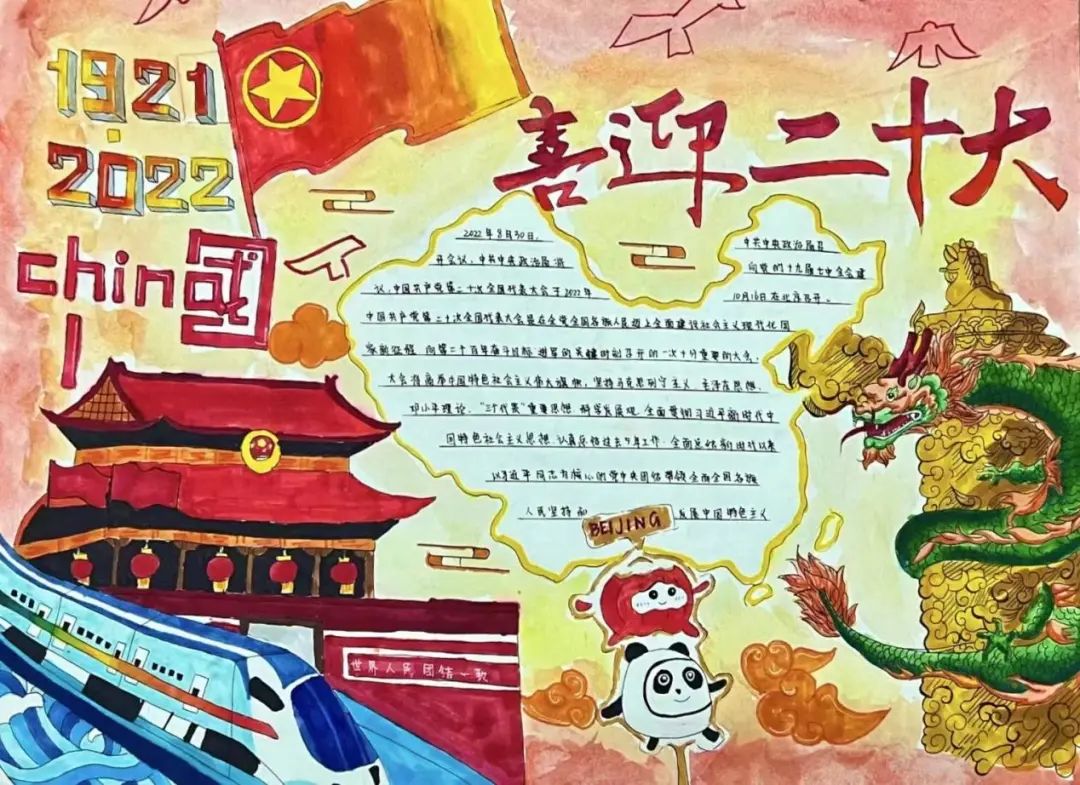 1921
2022
喜迎二十大
chin国
2022年8月30日,
中共中央政治局召
开会议,中共中央政治局决
向党的十九届七中全会建
议,中国共产党第二十次全国代表大会于2022年
10月16日在北京召开。
中国共产党第二十次全国代表大会是在全党全国各族人民迈上全面建设社会主义现代化国
家新征程 向第二个百年奋斗目标进军的关键时刻召开的一次十分重要的大会,
大会将高举中国特色社会主义伟大旗帜,坚持马克思列宁主义、毛泽东思想、
邓小平理论、"三个代表"重要思想、科学发展观、全面贯彻习近平新时代中
国特色社会主义思想、认真总结过去5年工作,全面总结新时代以来
以习近平同志为核心的党中央团结带领全国各族
人民坚持和
发展中国特色主义
BEIJING
世界人民团结一致